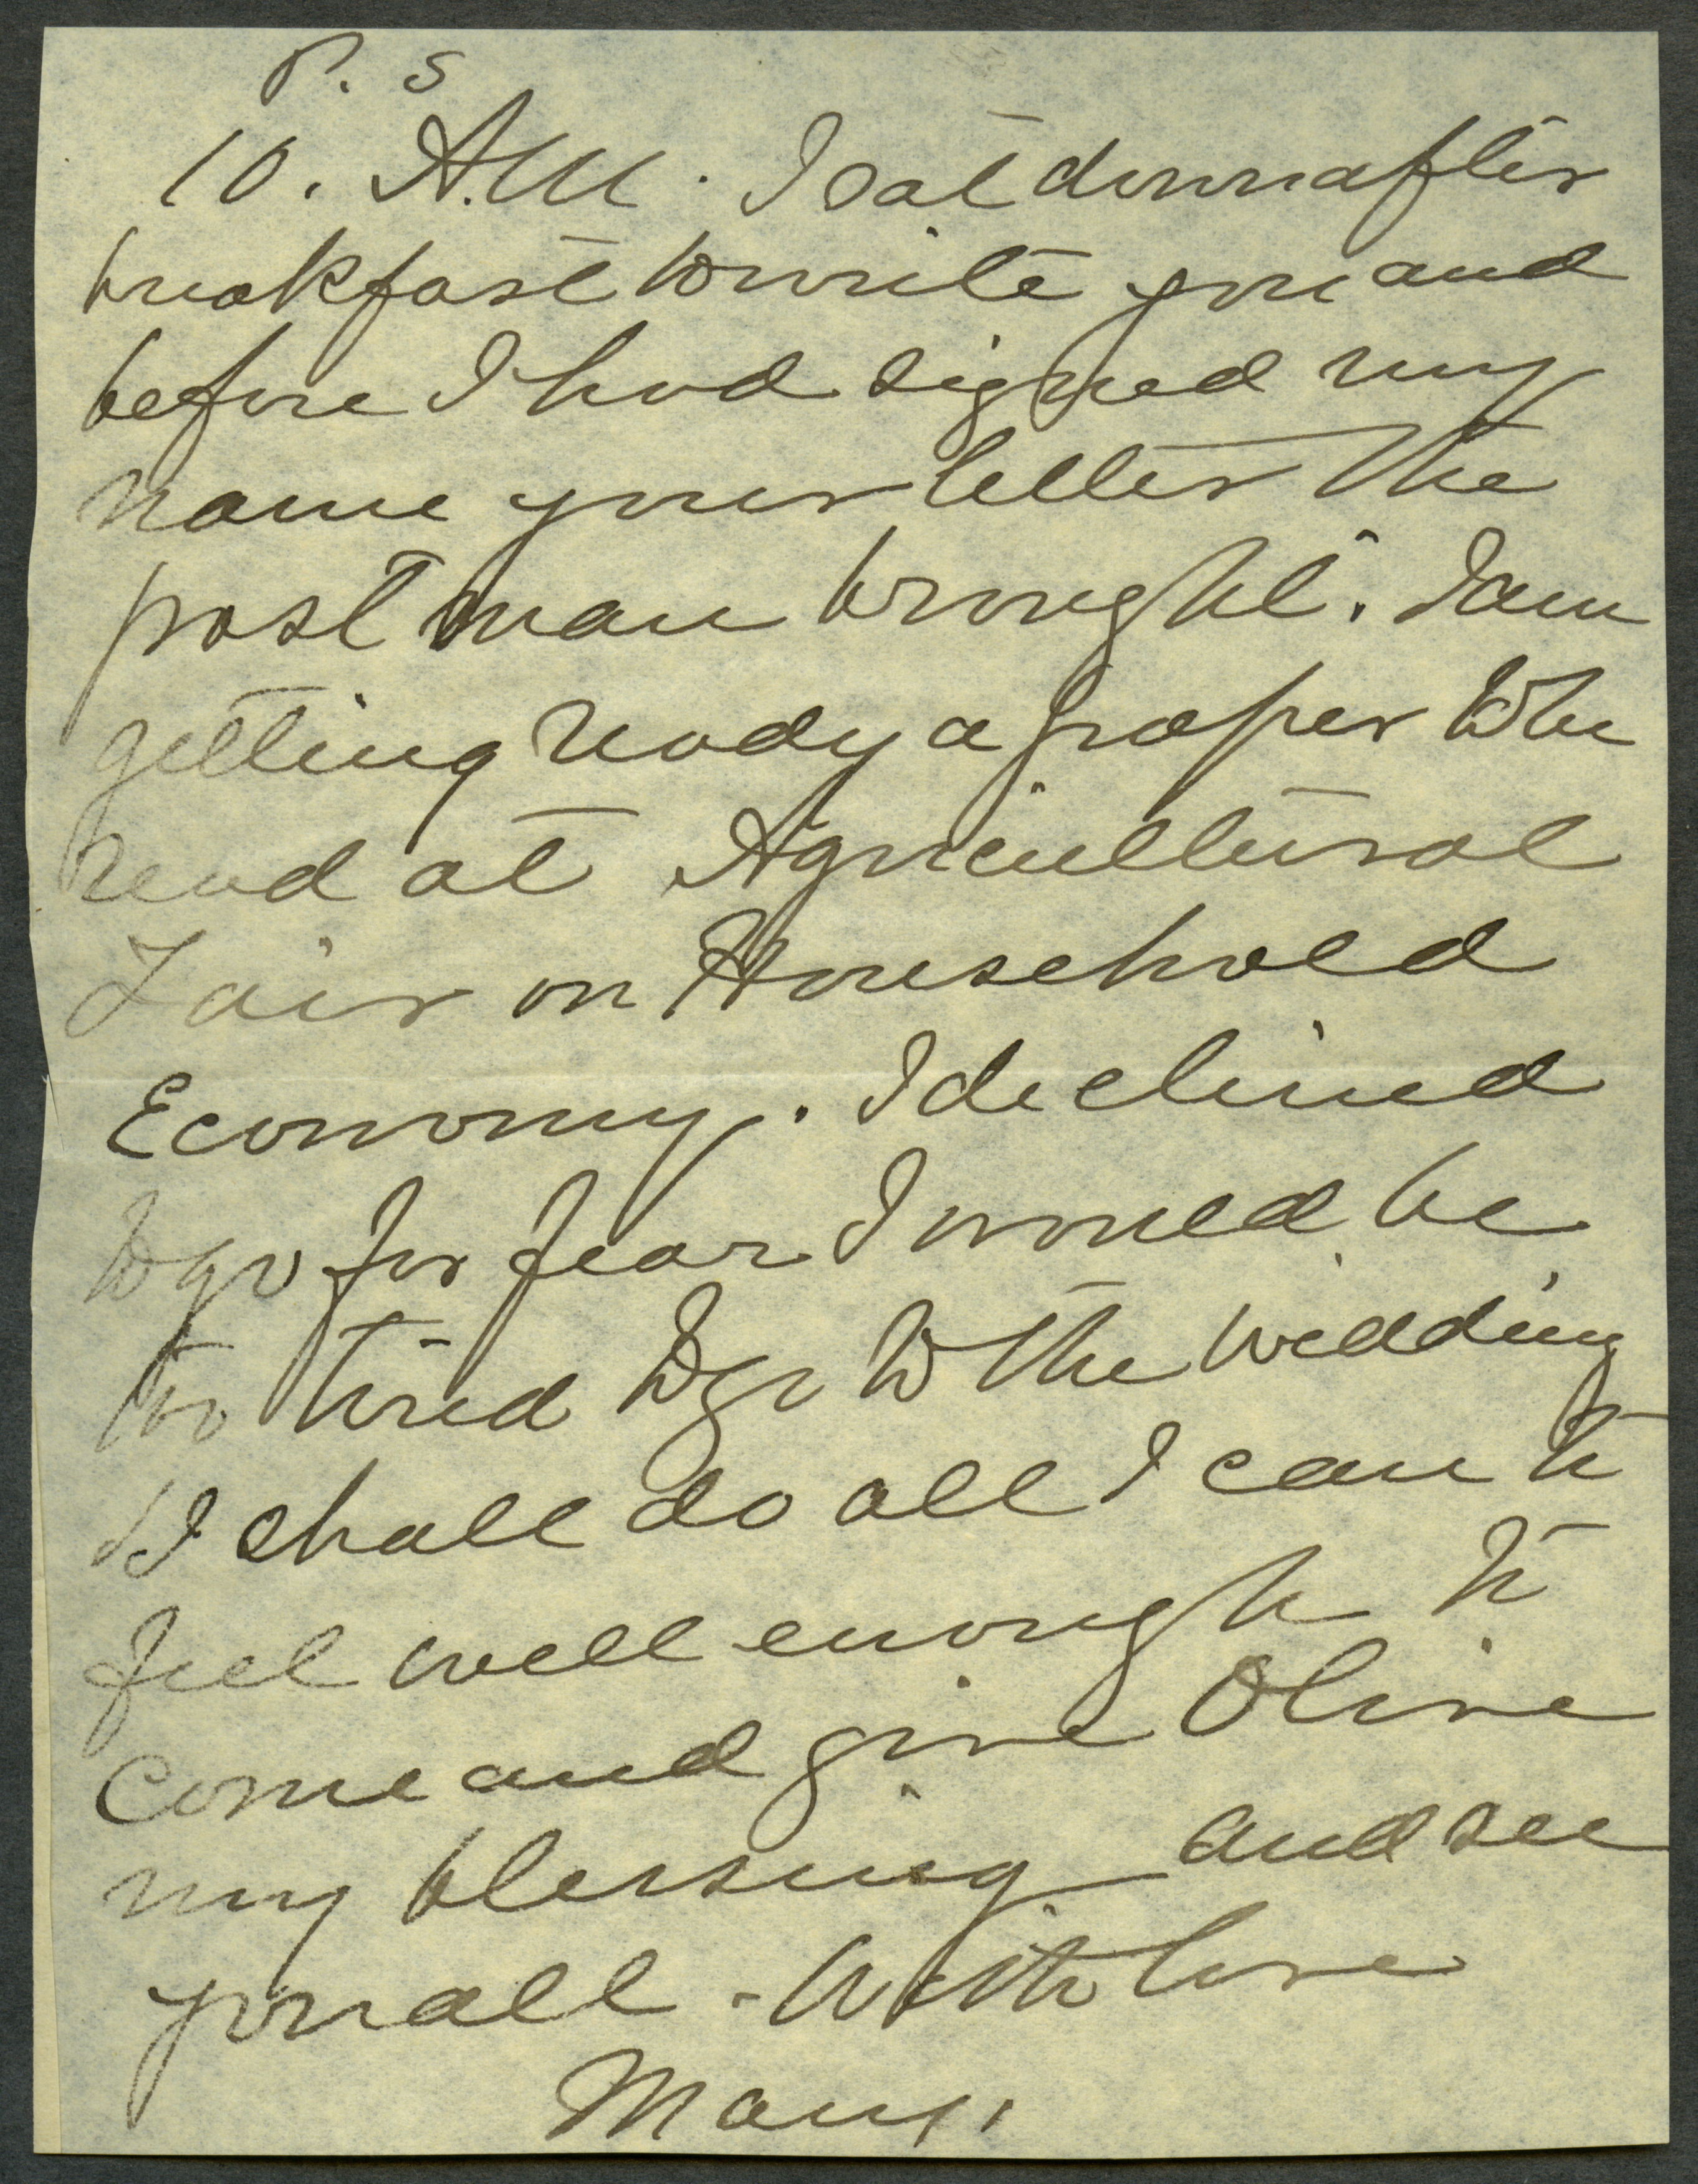 P. S
10. A.M. I sat down after
breakfast to write you and
before I had signed my
name your letter the
post man brought. I am
getting ready a paper to be
read at Agricultural
Fair on Household
Economy. I declined
to go for fear I would be
too tired to go to the wedding
I shall do all I can to
feel well enough to
come and give Olive
my blessing and see
you all - With love